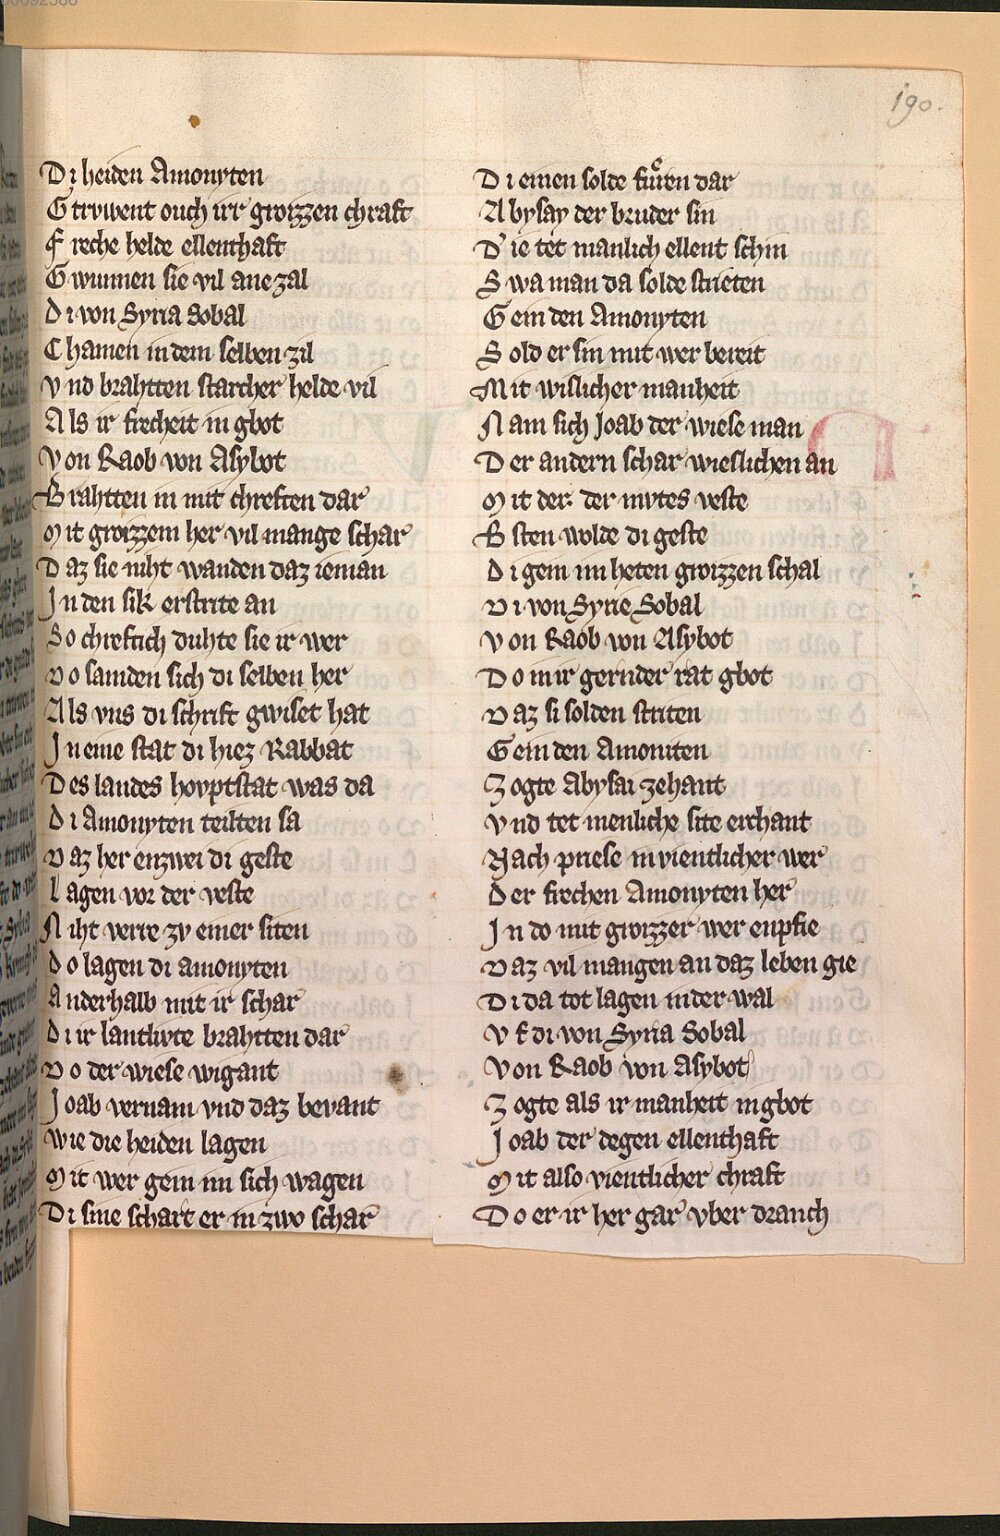 190.
Di heiden Amonyten
Gtrvwent ouch irr groizzen chraft
Freche helde ellenthaft
Gwunnen sie vil ane zal
Di von Syria Sobal
Chamen in dem selben zil
Vnd brahtten starcher helde vil
Als ir frecheit in gbot
Von Raob von Asybot
Brahtten in mit chreften dar
Mit groizzem her vil mange schar
Daz sie niht wanden daz ieman
In den sik erstrite an
So chreftich duhte sie ir wer
Do samden sich di selben her
Als vns di schrift gwiset hat
In eine stat di hiez Rabbat
Des landes hovptstat was da
Di Amonyten teilten sa
Daz her enzwei di geste
Lagen vor der veste
Niht verre zv einer siten
Do lagen di amonyten
Anderhalb mit ir schar
Di ir lantlvte brahtten dar
Do der wiese wigant
Joab vernam vnd daz bevant
Wie die heiden lagen
Mit wer gein im sich wagen
Di sine schart er in zwo schar
Di einen solde fuͤren dar
Abysay der bruder sin
Die tet manlich ellent schin
Swa man da solde strieten
Gein den Amonyten
Sold er sin mit wer bereit
Mit wislicher manheit
Nam sich Joab der wiese man
Der andern schar wieslichen an
Mit der der mvtes veste
Bsten wolde di geste
Di gein im heten groizzen schal
Di von Syrie Sobal
Von Raob von Asybot
Do in ir gernder rat gbot
Daz si solden striten
Gein den Amoniten
Zogte Abysai zehant
Vnd tet menliche site erchant
Nach priese in vientlicher wer
Der frechen Amonyten her
In do mit groizzer wer enpfie
Daz vil mangen an daz leben gie
Di da tot lagen in der wal
Vf di von Syria Sobal
Von Raob von Asybot
Zogte als ir manheit in gbot
Joab der degen ellenthaft
Mit also vientlicher chraft
Do er ir her gar vber dranch